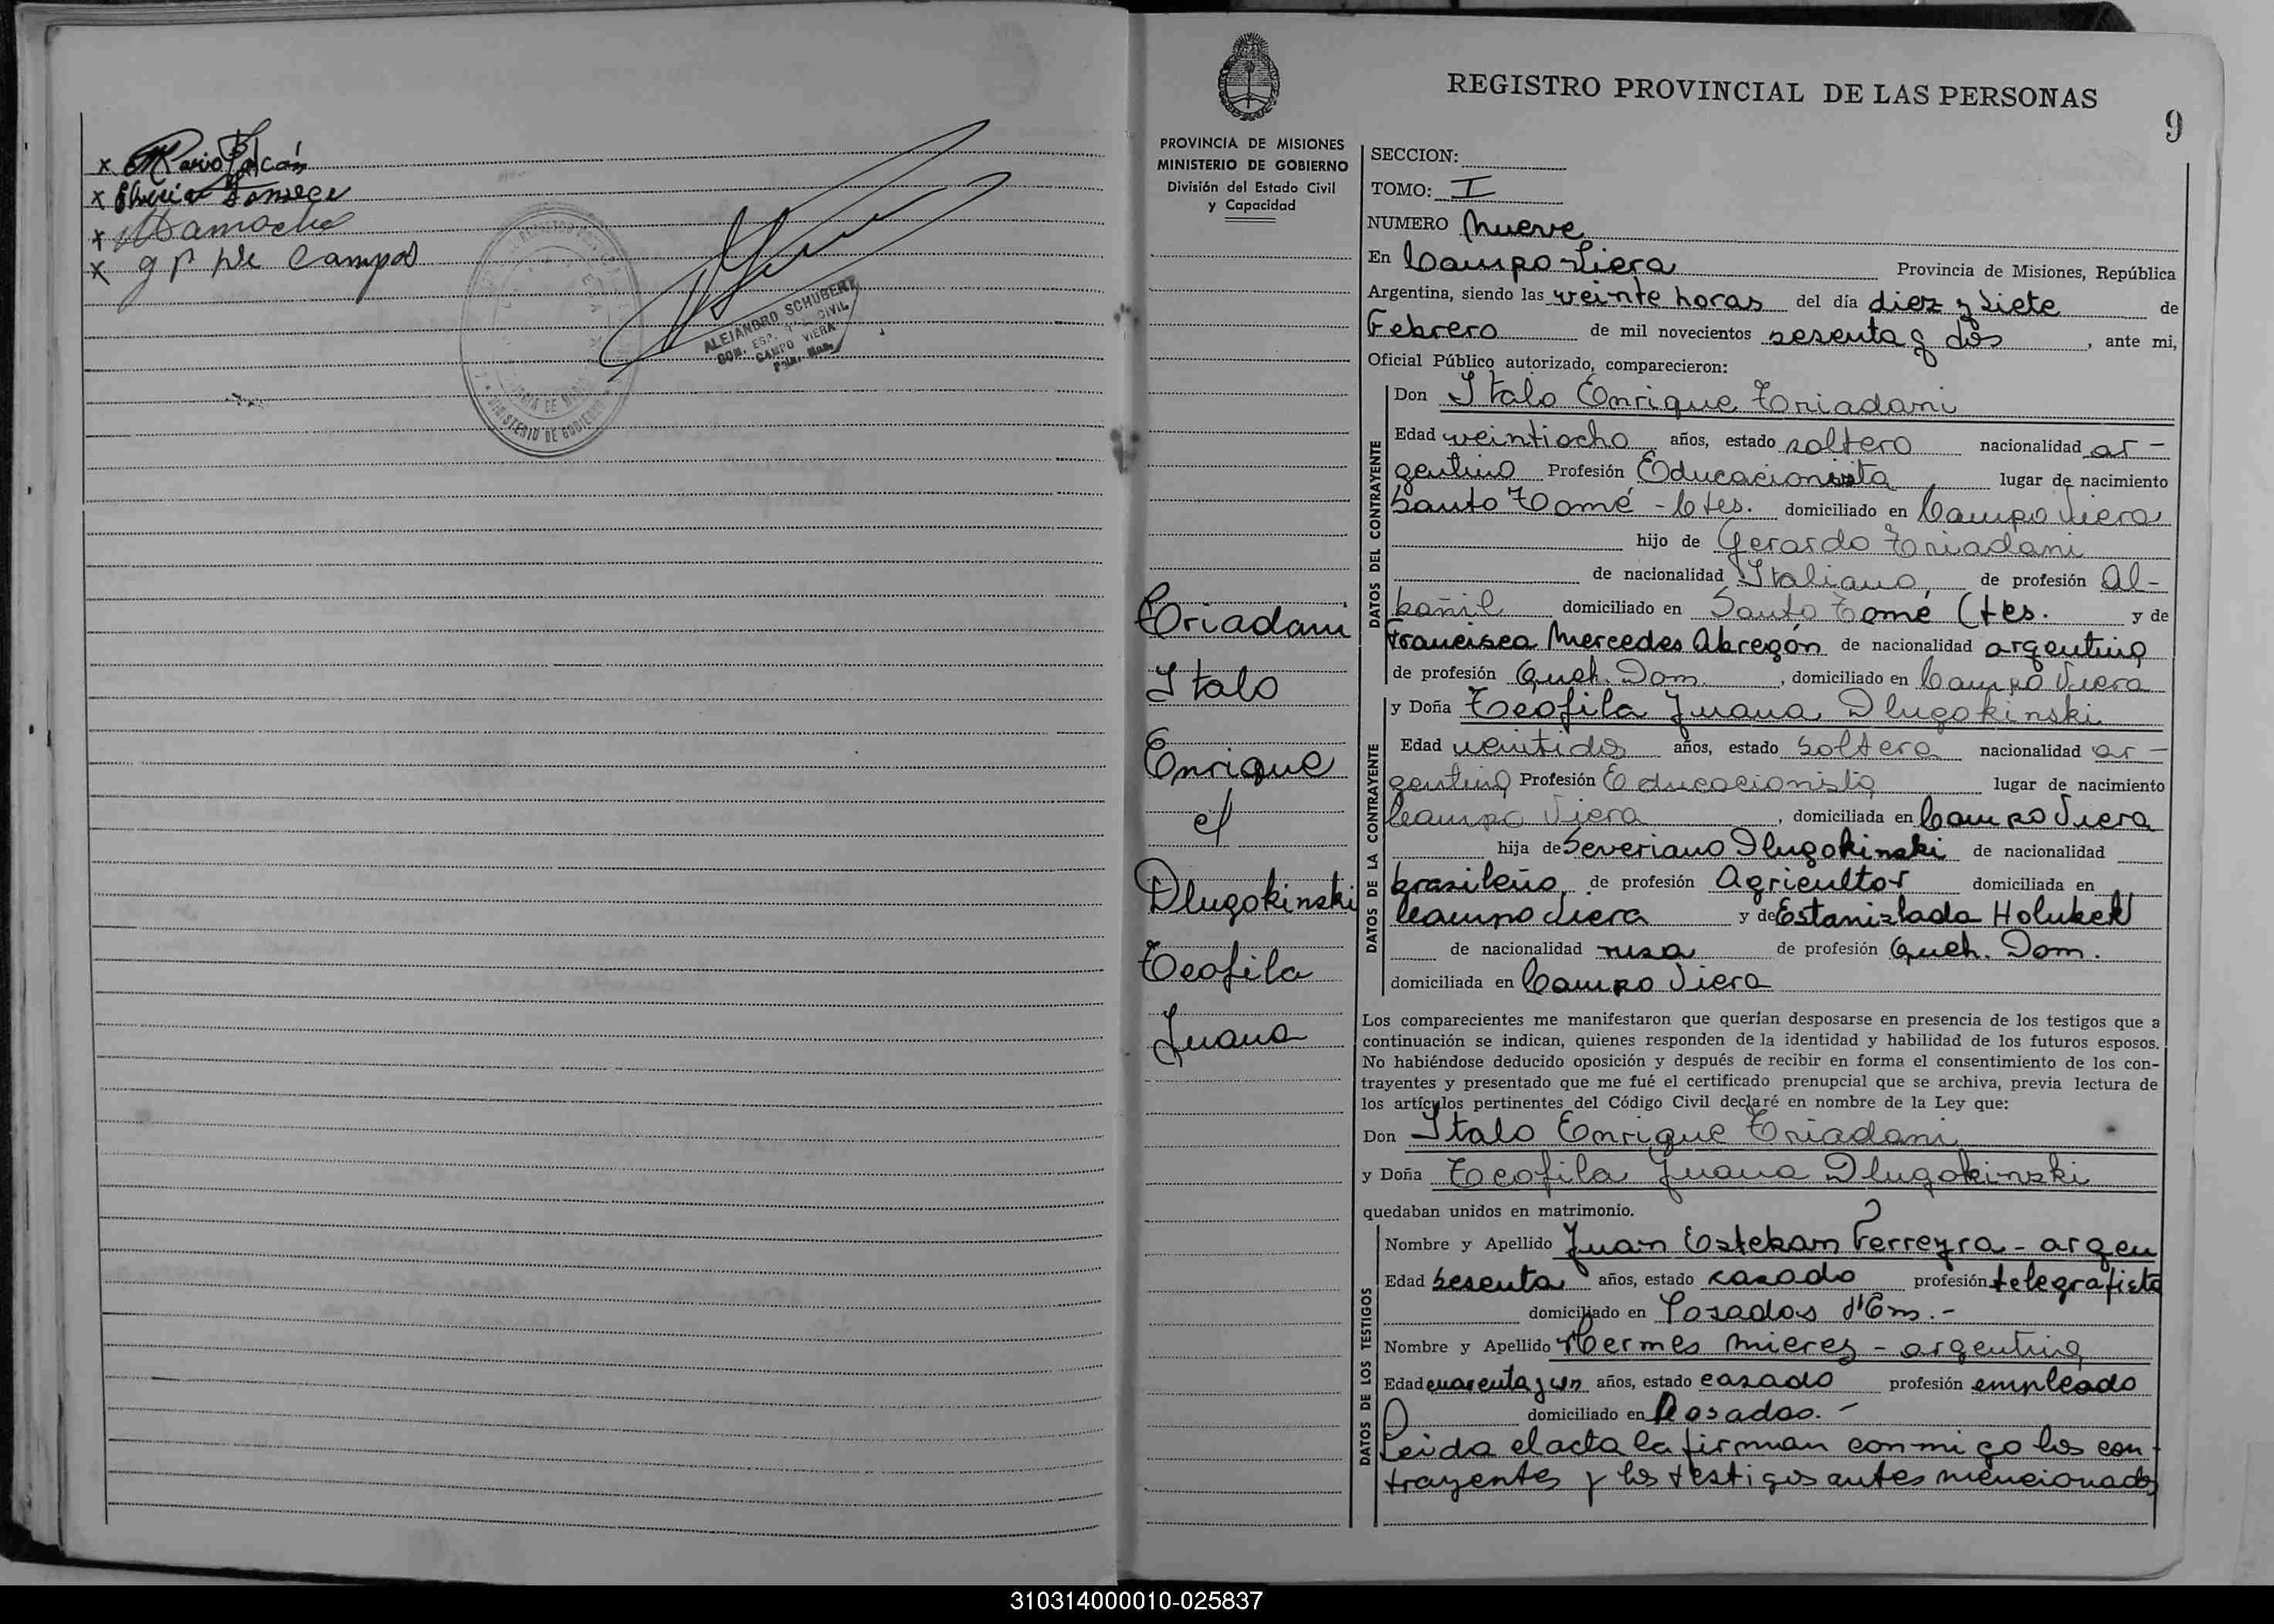 x Mario Falcón
x Elveria Fonseca
x Camacho
x g p de Campos
MINISTERIO DE GOBIERNO
ALEJANDRO SCHUBERT
CAMPO VIERA
REGISTRO PROVINCIAL DE LAS PERSONAS
9
PROVINCIA DE MISIONES
MINISTERIO DE GOBIERNO
División del Estado Civil
y Capacidad
Triadani
Italo
Enrique
c/
Dlugokinski
Teofila
Juana
SECCION:
TOMO: I
NUMERO Nueve
En Campo Viera Provincia de Misiones, República
Argentina, siendo las veinte horas del día diez y siete de
Febrero de mil novecientos sesenta y dos, ante mi,
Oficial Público autorizado, comparecieron:
DATOS DEL CONTRAYENTE
Don Italo Enrique Triadani
Edad veintiocho años, estado soltero nacionalidad ar-
gentino Profesión Educacionista lugar de nacimiento
Santo Tomé - Ctes. domiciliado en Campo Viera
hijo de Gerardo Triadani
de nacionalidad Italiano, de profesión Al-
bañil domiciliado en Santo Tomé Ctes. y de
Francisca Mercedes Abregón de nacionalidad argentina
de profesión Queh. Dom., domiciliado en Campo Viera
DATOS DE LA CONTRAYENTE
y Doña Teófila Juana Dlugokinski
Edad veintidos años, estado soltera nacionalidad ar-
gentina Profesión Educacionista lugar de nacimiento
Campo Viera, domiciliada en Campo Viera
hija de Severiano Dlugokinski de nacionalidad
brasileño, de profesión Agricultor domiciliada en
Campo Viera y de Estanislada Holubek
de nacionalidad rusa de profesión Queh. Dom.
domiciliada en Campo Viera
Los comparecientes me manifestaron que querían desposarse en presencia de los testigos que a
continuación se indican, quienes responden de la identidad y habilidad de los futuros esposos.
No habiéndose deducido oposición y después de recibir en forma el consentimiento de los con-
trayentes y presentado que me fué el certificado prenupcial que se archiva, previa lectura de
los artículos pertinentes del Código Civil declaré en nombre de la Ley que:
Don Italo Enrique Triadani
y Doña Teofila Juana Dlugokinski
quedaban unidos en matrimonio.
DATOS DE LOS TESTIGOS
Nombre y Apellido Juan Esteban Ferreyra - argen
Edad sesenta años, estado casado profesión telegrafista
domiciliado en Posadas
Nombre y Apellido Hermes Mierez - argentino
Edad cuarenta y un años, estado casado profesión empleado
domiciliado en Posadas. -
Leida el acta la firman conmigo los con-
trayentes y los testigos antes mencionados
310314000010-025837